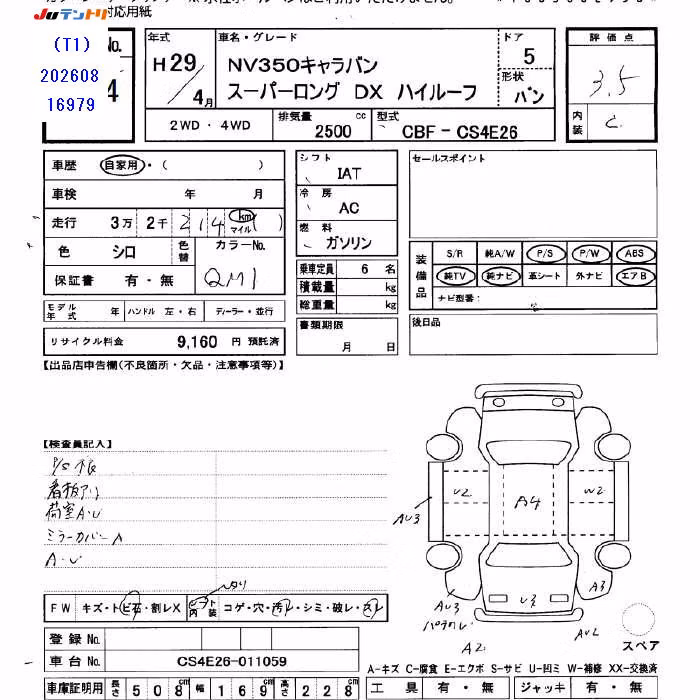 Juテントリ
対応用紙
(T1)
202608
16979
No.
4
年式
H 29/4月
車名・グレード
NV350キャラバン
スーパーロング DX ハイルーフ
ドア
5
形状
バン
評価点
3.5
内装
C
2WD・4WD
排気量
2500 cc
型式
CBF-CS4E26
車歴
自家用・( )
車検
年 月
走行
3万2千214 km マイル ( )
色
シロ
色替
カラーNo.
QM1
保証書
有・無
シフト
IAT
冷房
AC
燃料
ガソリン
乗車定員 6 名
積載量 kg
総重量 kg
セールスポイント
装備品
S/R 純A/W P/S P/W ABS
純TV 純ナビ 革シート 外ナビ エアB
ナビ型番:
モデル年式 年 ハンドル 左・右 ディーラー・並行
リサイクル料金 9,160 円 預託済
書類期限
月 日
後日品
【出品店申告欄(不良箇所・欠品・注意事項等)】
【検査員記入】
P/S不良
看板アリ
荷室A・U
ミラーカバーA
A・U
U2
A4
W2
AU3
A3
AU3
U3
パテクレ
A2
AU2
スペア
FW キズ・トビ石・割レX
シート内装 コゲ・穴・汚レ・シミ・破レ・スレ
登録No.
車台No. CS4E26-011059
A-キズ C-腐食 E-エクボ S-サビ U-凹ミ W-補修 XX-交換済
車庫証明用 長さ 508cm 幅 169cm 高さ 228cm
工具 有・無 ジャッキ 有・無